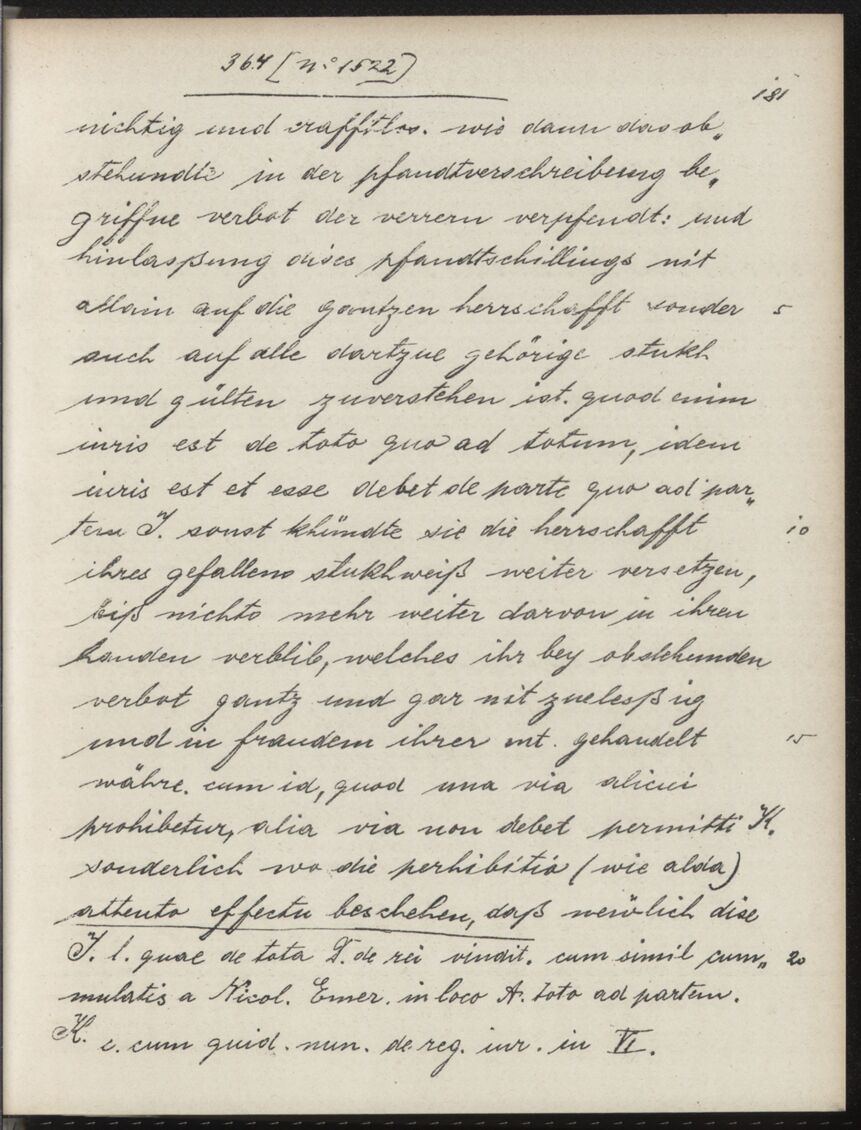 364 [N° 1522)
181
nichtig und crafftlos. wie dann das ob„
stehundte in der pfandtverschreibung be„
griffne verbot der verrern verpfendt: und
hinlasßung dises pfandtschillings nit
allain auf die gantzen herrschafft sonder 5
auch auf alle dartzue gehörige stukh
und gülten zuverstehen ist. quod enim
iuris est de toto quo ad totum, idem
iuris est et esse debet de parte quo ad par„
tem J. sonst khündte sie die herrschafft 10
ihres gefallens stukhweiß weiter versetzen,
biß nichts mehr weiter darvon in ihren
handen verblib, welches ihr bey obstehunden
verbot gantz und gar nit zuelesßig
und in fraudem ihrer mt. gehandelt 15
währe. cum id, quod una via alicui
prohibetur, alia via non debet permitti K.
sonderlich wo die perhibitio (wie alda)
attento effectu beschehen, daß nemblich dise
J. l. quae de tota D. de rei vindit. cum simil cum„ 20
mulatis a Nicol. Emer. in loco A. toto ad partem.
K. c. cum quid. nun. de reg. iur. in VI.